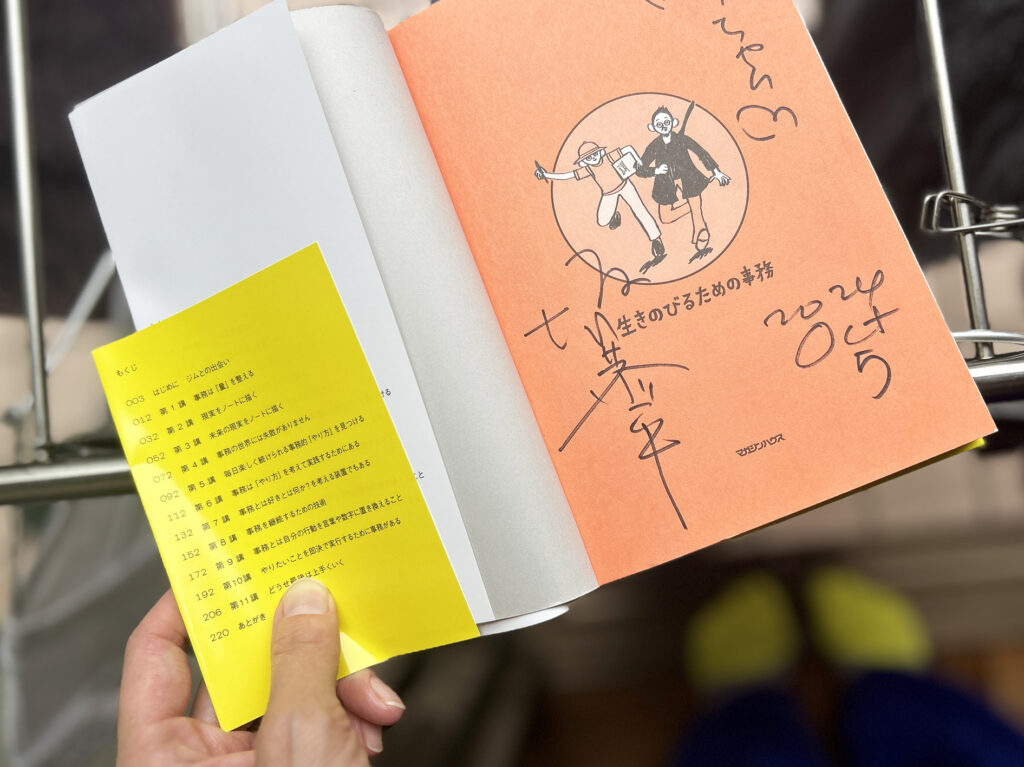 もくじ
003 はじめに ジムとの出会い
012 第1講 事務は『量』を整える
032 第2講 現実をノートに描く
052 第3講 未来の現実をノートに描く
072 第4講 事務の世界には失敗がありません
092 第5講 毎日楽しく続けられる事務的『やり方』を見つける
112 第6講 事務は『やり方』を考えて実践するためにある
132 第7講 事務とは好きとは何か?を考える装置でもある
152 第8講 事務を継続するための技術
172 第9講 事務とは自分の行動を言葉や数字に置き換えること
192 第10講 やりたいことを即決で実行するために事務がある
206 第11講 どうせ最後は上手くいく
220 あとがき
ちゃんへ
生きのびるための事務
2024
Oct
5
マガジンハウス